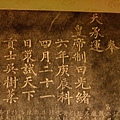 奉
天承運
皇帝制曰光緒
六年庚辰科
四月二十一
日策試天下
貢士吳樹棻